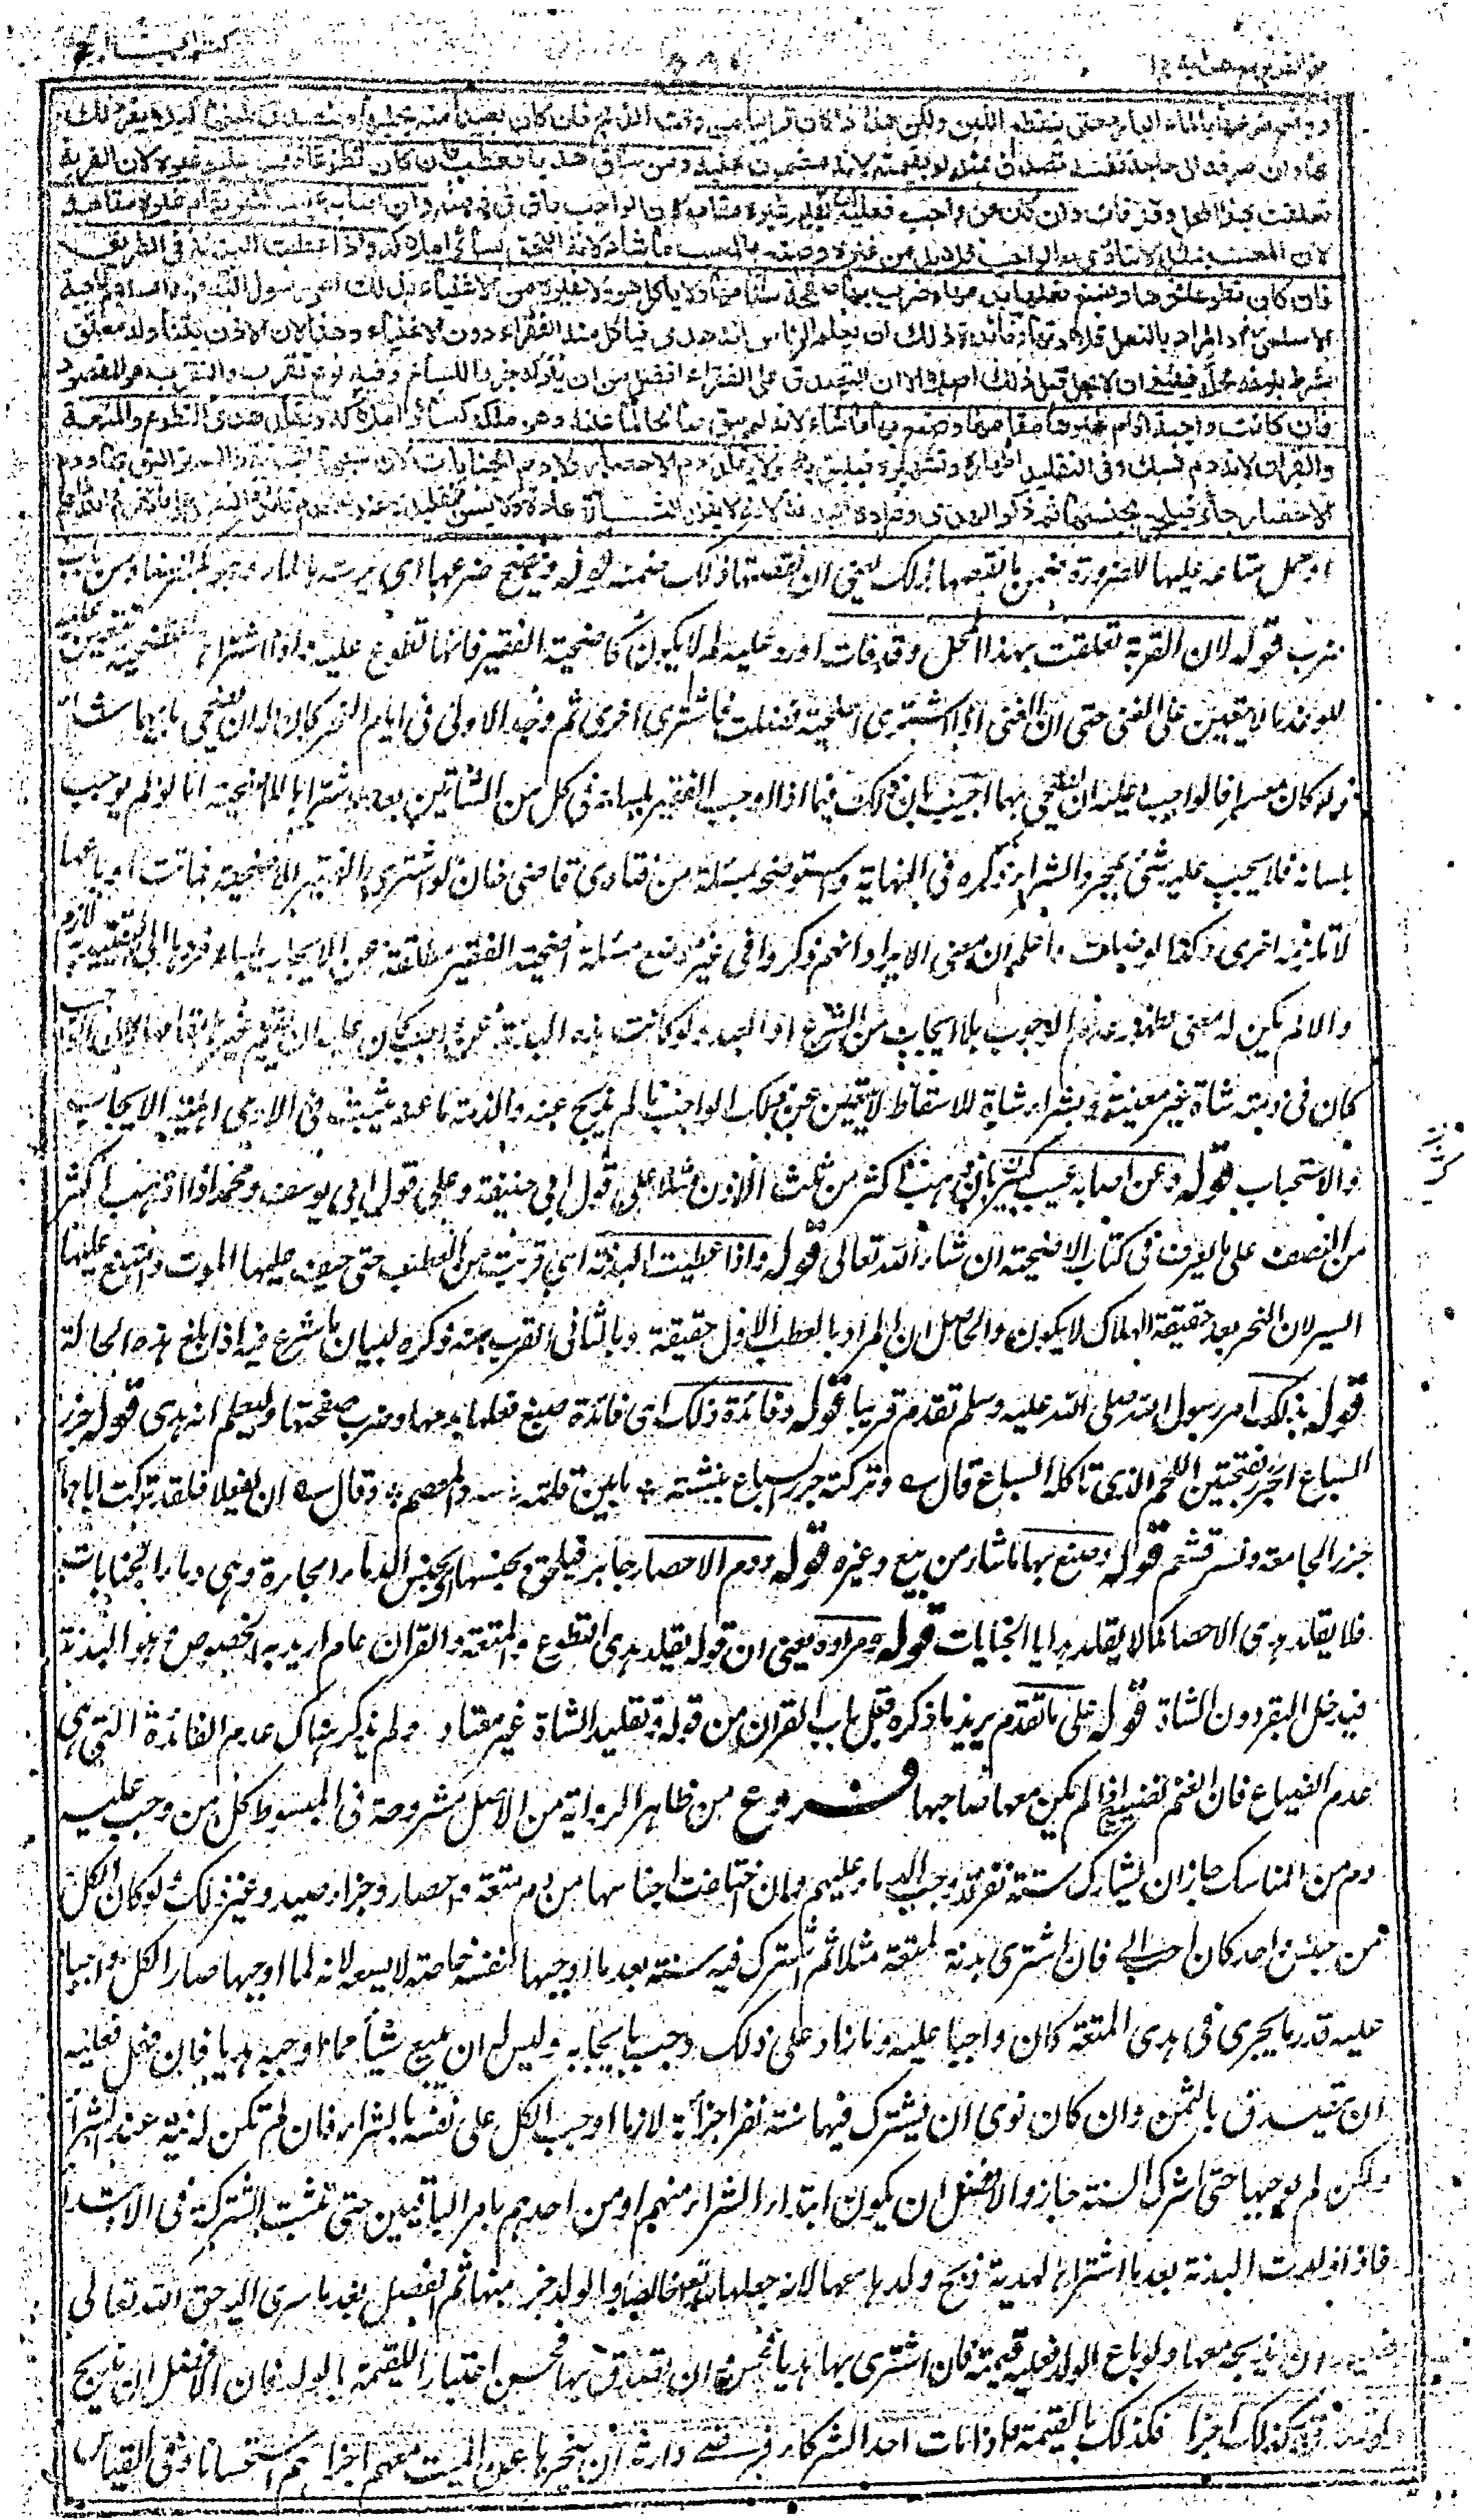 كتاب الحج
وينضح ضرعها بالماء البارد حتى ينقطع اللبن ولكن هذا اذا كان قريبا من وقت الذبح فان كان بعيدا منه يحلبها ويتصدق بلبنها كيلا يضر ذلك
بها وان صرفه الى حاجة نفسه تصدق بمثله او بقيمته لانه مضمون عليه ومن ساق هديا فعطب فان كان تطوعا فليس عليه غيره لان القربة
تعلقت بهذا المحل وقد فات وان كان عن واجب فعليه ان يقيم غيره مقامه لان الواجب باق في ذمته وان اصابه عيب كثير يقام غيره مقامه
لان المعيب بمثله لا يتادى به الواجب فلا بد من غيره وصنع بالمعيب ما شاء لانه التحق بسائر املاكه واذا عطبت البدنة في الطريق
فان كان تطوعا نحرها وصبغ نعلها بدمها وضرب بها صفحة سنامها ولا ياكل هو ولا غيره من الاغنياء بذلك امر رسول الله ناجية
الاسلمي والمراد بالنعل قلادتها وفائدة ذلك ان يعلم الناس انه هدى فياكل منه الفقراء دون الاغنياء وهذا لان الاذن بتناوله معلق
بشرط بلوغه محله فينبغي ان لا يحل قبل ذلك اصلا الا ان التصدق على الفقراء افضل من ان يتركه جزرا للسباع وفيه نوع تقرب والتقرب هو المقصود
فان كانت واجبة اقام غيرها مقامها وصنع بها ما شاء لانه لم يبق صالحا لما عينه وهو ملكه كسائر املاكه ويقلد هدى التطوع والمتعة
والقران لانه دم نسك وفي التقليد اظهاره وتشهيره فيليق به ولا يقلد دم الاحصار ولا دم الجنايات لان سببها الجناية والستر اليق بها ودم
الاحصار جابر فيلحق بجنسها ثم ذكر الهدى ومراده البدنة لانه لا يقلد الشاة عادة ولا يسن تقليده عندنا لعدم فائدة التقليد على ما تقدم والله اعلم
او حمل متاعه عليها للضرورة ضمن ما نقصها ذلك يعني ان نقصتها ذلك ضمنه قوله وينضح ضرعها اي يرشه بالماء وهو بكسر الضاد من باب
ضرب قوله لان القربة تعلقت بهذا المحل وقد فات اورد عليه لم لا يكون كاضحية الفقير فانها تطوع عليه واذا اشتراها للتضحية تتعين عليه
للوفاء لا يتعين على الغنى حتى ان الغنى اذا اشترى اضحية فضلت فاشترى اخرى ثم وجد الاولى في ايام النحر كان له ان يضحي بايهما شاء
ولو كان معسرا فالواجب عليه ان يضحي بهما اجيب بان ذلك فيما اذا اوجب الفقير بلسانه في كل من الشاتين بعد ما اشتراها للاضحية اما لو لم يوجب
بلسانه فلا يجب عليه شئ بمجرد الشراء ذكره في النهاية واستوضحه بمسئلة من فتاوى قاضي خان لو اشترى الفقير الاضحية فماتت او باعها
لا تلزمه اخرى وكذا لو ضلت واعلم ان معنى الايراد انهم ذكروا في غير موضع مسئلة اضحية الفقير مطلقة عن الايجاب بلسانه فردها الى التقييد به لازم
والا لم يكن له معنى لظهور عدم الوجوب بلا ايجاب من الشرع او العبد ولو كانت هذه البدنة عن واجب كان عليه ان يقيم غيرها مقامها لان الواجب
كان في ذمته شاة غير معينة وبشراء شاة للاسقاط لا يتعين عن ذلك الواجب ما لم يذبح عنه والذمة ما عنه يثبت في الآدمي اهلية الايجاب
والاستحباب قوله وعن اصابه عيب كبير بان ذهب اكثر من ثلث الاذن مثلا على قول ابي حنيفة وعلى قول ابي يوسف ومحمد اذا ذهب اكثر
من النصف على ما يعرف في كتاب الاضحية ان شاء الله تعالى قوله واذا عطبت البدنة اي قربت من العطب حتى خيف عليها الموت وامتنع عليها
السير لان النحر بعد حقيقة الهلاك لا يكون والحاصل ان المراد بالعطب الاول حقيقة وبالثاني القرب منه ذكره لبيان ما شرع فيه اذا بلغ هذه الحالة
قوله بذلك امر رسول الله صلى الله عليه وسلم تقدم قريبا قوله وفائدة ذلك اي فائدة صبغ نعلها بدمها وضرب صفحتها به ليعلم انه هدى قوله جزر
السباع الجزر بفتحتين اللحم الذي تاكله السباع قال ؎ وتركته جزر السباع ينشنه ؞ ما بين قلة راسه والمعصم ؞ وقال ؎ ان يفعلا فلقد تركت اباهما
جزر الجامعة ونسر قشعم قوله وصنع بها ما شاء من بيع وغيره قوله ودم الاحصار جابر فيلحق بجنسها اي بجنس الدماء الجابرة وهي دماء الجنايات
فلا يقلد هدى الاحصار كما لا يقلد هدايا الجنايات قوله ومراده يعني ان قوله يقلد هدى التطوع والمتعة والقران عام اريد به الخصوص وهو البدنة
فيدخل البقر دون الشاة قوله على ما تقدم يريد ما ذكره قبل باب القران من قوله وتقليد الشاة غير معتاد ولم يذكر هناك عدم الفائدة التي هي
عدم الضياع فان الغنم تضيع اذا لم يكن معها صاحبها فروع من ظاهر الرواية من الاصل مشروحة في المبسوط كل من وجب عليه
دم من المناسك جاز ان يشارك ستة نفر قد وجب الدماء عليهم وان اختلفت اجناسها من دم متعة واحصار وجزاء صيد وغير ذلك ولو كان الكل
من جنس واحد كان احب الي فان اشترى بدنة لمتعة مثلا ثم اشترك فيه ستة بعد ما اوجبها لنفسه خاصة لا يسعه لانه لما اوجبها صار الكل واجبا
عليه قدر ما يجزى في هدى المتعة كان واجبا عليه وما زاد على ذلك وجب بايجابه وليس له ان يبيع شيأ مما اوجبه هديا فان فعل فعليه
ان يتصدق بالثمن وان كان نوى ان يشترك فيها ستة نفر اجزأته لانه ما اوجب الكل على نفسه بالشراء فان لم تكن له نية عند الشراء
ولكن لم يوجبها حتى اشرك الستة جاز والافضل ان يكون ابتداء الشراء منهم او من احدهم بامر الباقين حتى تثبت الشركة في الابتداء
فاذا ولدت البدنة بعد ما اشتراها لهديه ذبح ولدها معها لانه جعلها لله تعالى خالصا والولد جزء منها ثم انفصل بعد ما سرى اليه حق الله تعالى
فعليه ان يذبحه معها ولو باع الولد فعليه قيمته فان اشترى بها هديا فحسن وان تصدق بها فحسن اعتبارا للقيمة بالولد فان الافضل ان يذبح
ولو تصدق به كذلك اجزأه فكذلك بالقيمة واذا مات احد الشركاء فرضى وارثه ان ينحرها عن الميت معهم اجزأهم استحسانا وفي القياس